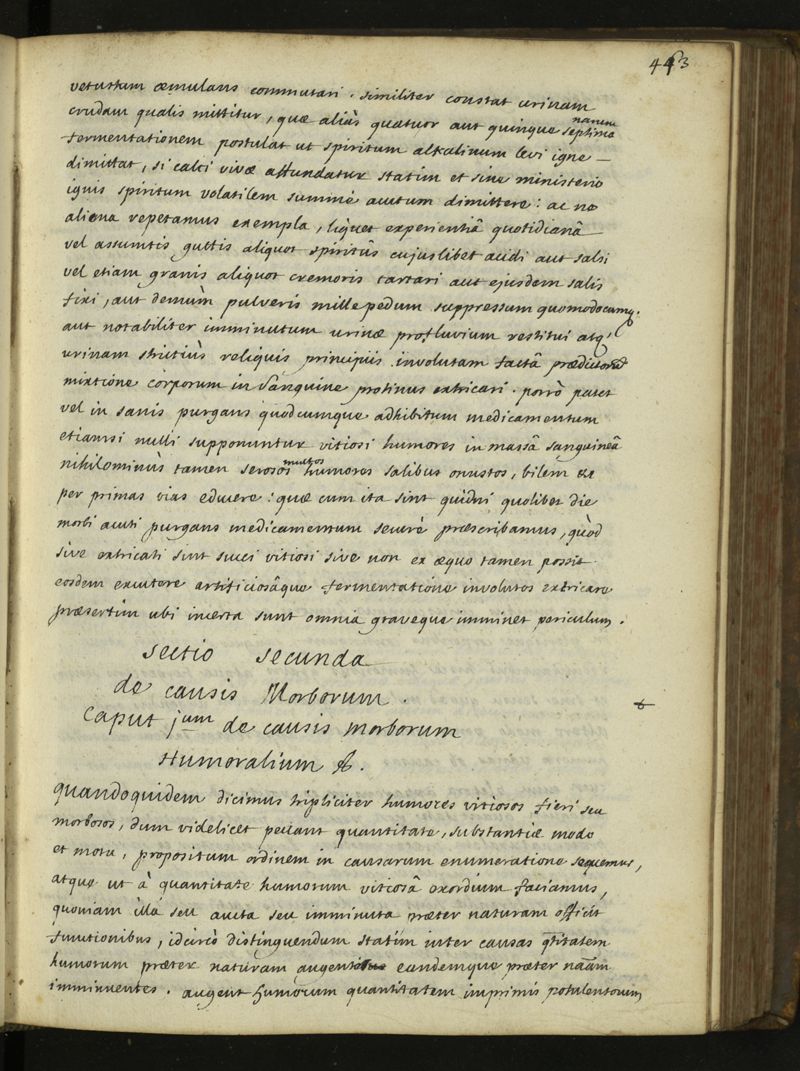 443
vetustum æmulans commutari. similiter constat urinam
crudam qualis mittitur, quæ aliàs quatuor aut quinque septima
fermentationem postulat ut spiritum alkalinum levi igne
dimittat, si calci vivæ affundatur statim et sine ministerio
ignis spiritum volatilem summè acutum dimittere: ac ne
aliena repetamus exempla, liquet experientiâ quotidianâ
vel assumtis guttis aliquot spiritûs cujuslibet acidi aut salsi
vel etiam granis aliquot cremoris tartari aut ejusdem salis
fixi, aut demùm pulveris millepedum suppressum quomodocumq.
aut notabiliter imminutum urinæ profluvium restitui atq
urinam strictiùs reliquis principiis involutam factâ prædictorum
mixtione corporum in sanguine protinus extricari. porrò patet
vel in sanis purgans quodcumque adhibitum medicamentum
etiamsi nulli supponuntur vitiosi humores in massâ sanguineâ
nihilominùs tamen serosos multos humores salibus onustos, bilem &
per primas vias educere: quæ cum ita sint quidni quolibet die
morbi acuti purgans medicamentum severè præscribamus, quòd
sive extricati sint succi vitiosi sive non ex æquo tamen possit
eosdem excutere artificiosâque fermentatione involutos extricare
præsertim ubi incerta sunt omnia graveque imminet periculum.
Sectio Secunda
de causis Morborum.
Caput jum de causis morborum
Humoralium
quandoquidem dicimus tripliciter humores vitiosos fieri seu
morbosos, dum videlicet peccant quantitate, substantiæ modo
et motu, propositum ordinem in causarum enumeratione sequemur,
atque ut à quantitate humorum vitiosâ exordium faciamus,
quoniam illa seu aucta seu imminuta præter naturam officit
functionibus, idcircò distinguendum statim inter causas qtitatem
humorum præter naturam augentes eandemque præter naam
imminuentes. augent humorum quantitatem imprimis potulentorum